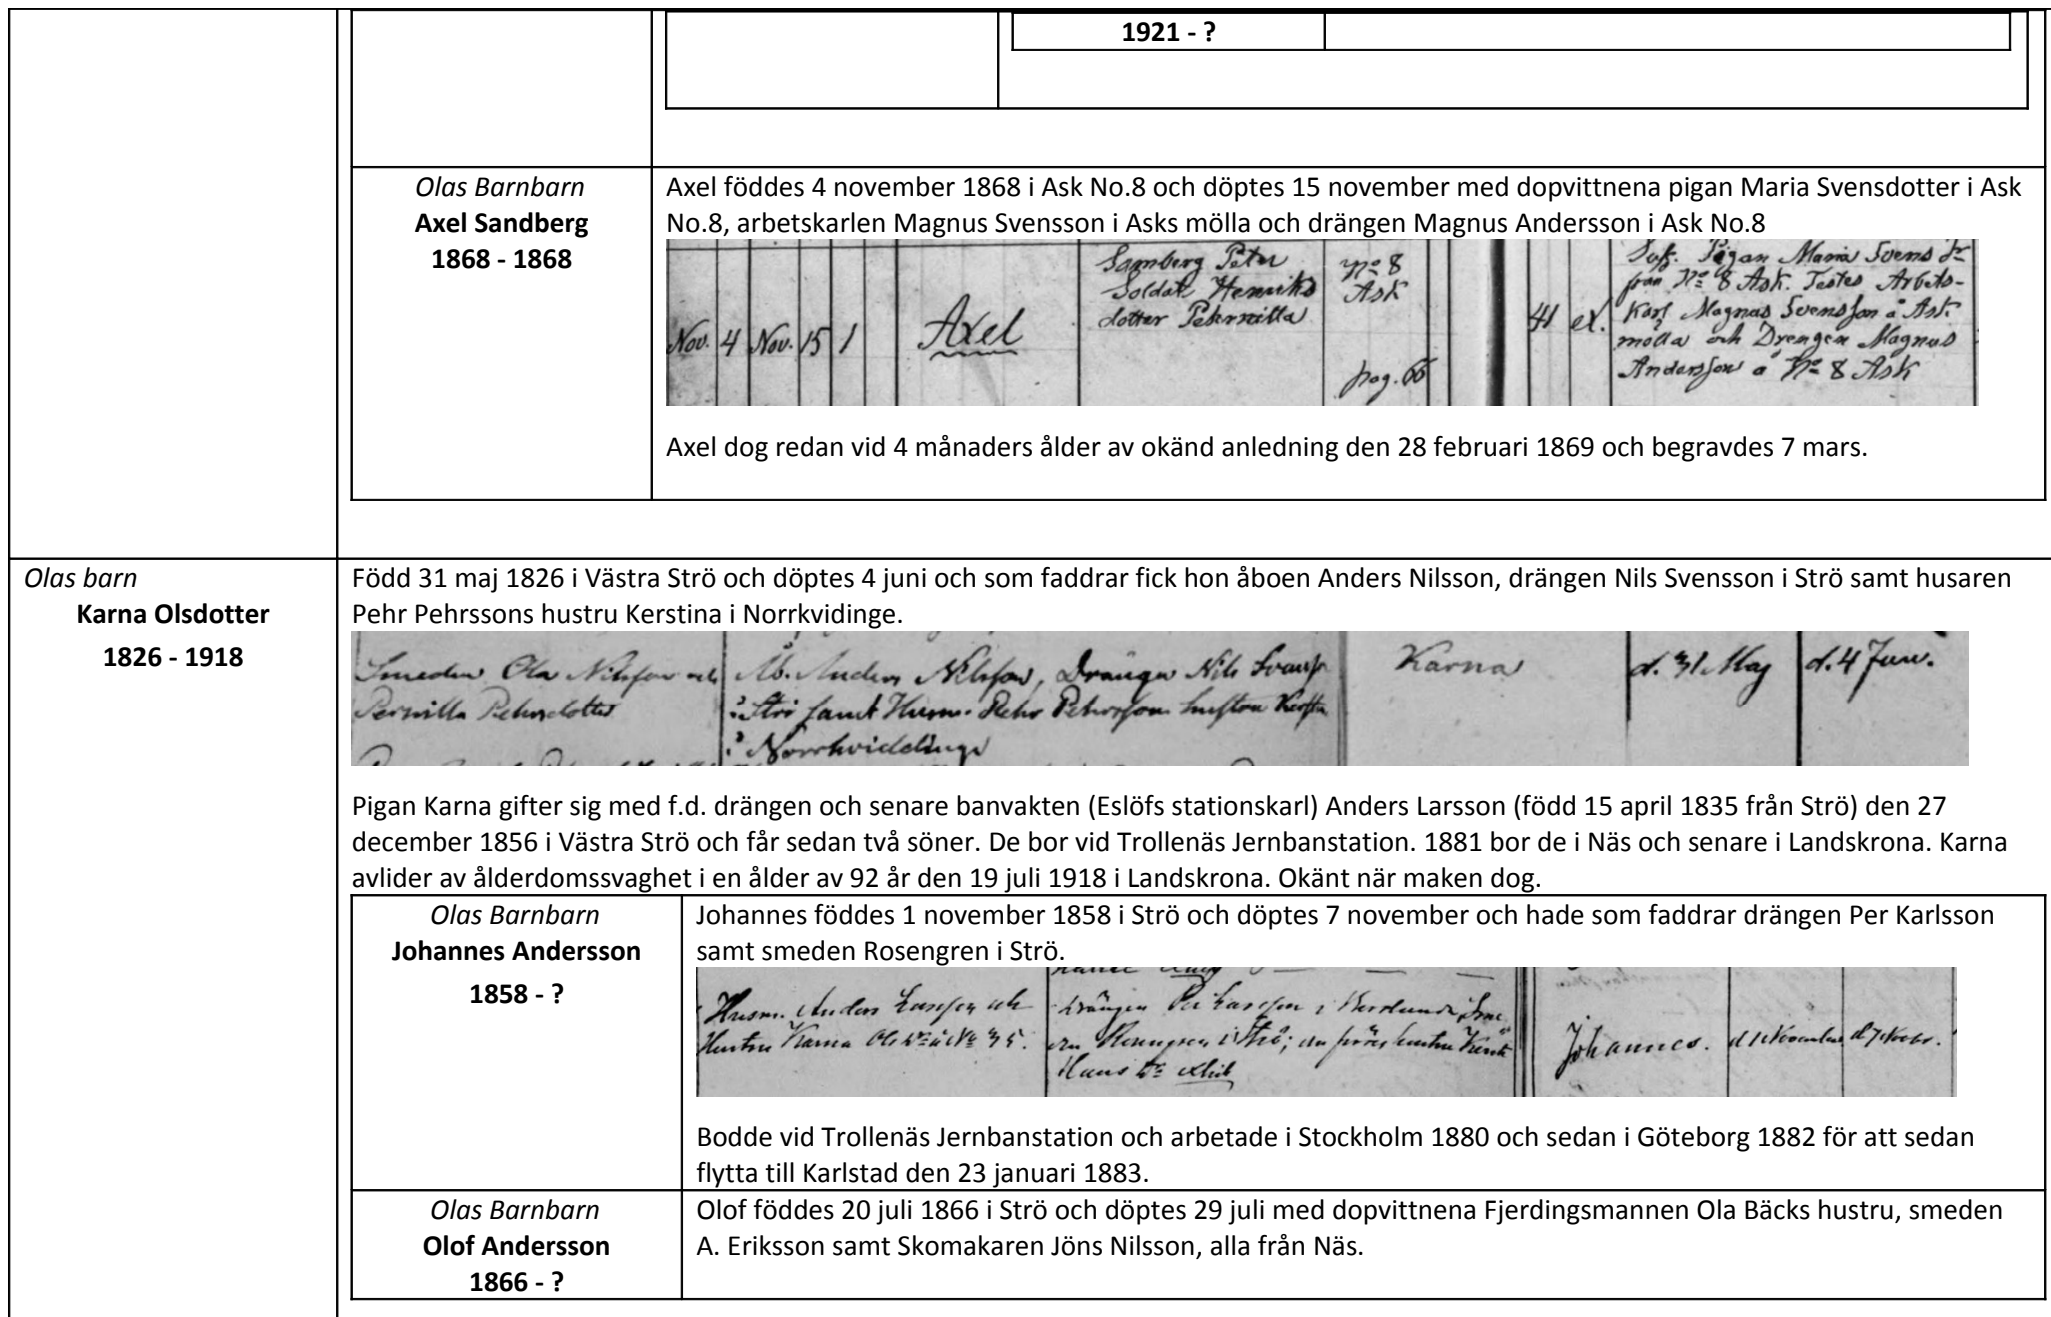 1921 - ?
Olas Barnbarn
Axel Sandberg
1868 - 1868
Axel föddes 4 november 1868 i Ask No.8 och döptes 15 november med dopvittnena pigan Maria Svensdotter i Ask
No.8, arbetskarlen Magnus Svensson i Asks mölla och drängen Magnus Andersson i Ask No.8
Nov. 4 Nov. 15 1 Axel
Samberg Peter
Soldat Henriks
dotter Pehrnilla
No 8
Ask
pag. 66
41 ex.
Pigan Maria Svens dr
från No 8 Ask. Testes Arbets-
Karl Magnus Svensson å Ask
mölla och Drengen Magnus
Andersson å No 8 Ask
Axel dog redan vid 4 månaders ålder av okänd anledning den 28 februari 1869 och begravdes 7 mars.
Olas barn
Karna Olsdotter
1826 - 1918
Född 31 maj 1826 i Västra Strö och döptes 4 juni och som faddrar fick hon åboen Anders Nilsson, drängen Nils Svensson i Strö samt husaren
Pehr Pehrssons hustru Kerstina i Norrkvidinge.
Smeden Ola Nilsson och
Pernilla Pehrsdotter
Åb. Anders Nilsson, Drängen Nils Svenss.
i Strö samt Husm. Pehr Pehrsson hustru
i Norrhviddinge
Karna
d. 31 Maj
d. 4 Jun.
Pigan Karna gifter sig med f.d. drängen och senare banvakten (Eslöfs stationskarl) Anders Larsson (född 15 april 1835 från Strö) den 27
december 1856 i Västra Strö och får sedan två söner. De bor vid Trollenäs Jernbanstation. 1881 bor de i Näs och senare i Landskrona. Karna
avlider av ålderdomssvaghet i en ålder av 92 år den 19 juli 1918 i Landskrona. Okänt när maken dog.
Olas Barnbarn
Johannes Andersson
1858 - ?
Johannes föddes 1 november 1858 i Strö och döptes 7 november och hade som faddrar drängen Per Karlsson
samt smeden Rosengren i Strö.
Husm. Anders Larsson och
Hustru Karna Ols dr å No 35.
drängen Per Larsson i
Rosengren i Strö; hustru
Hans dr
Johannes.
d 1 November
d 7 Novbr.
Bodde vid Trollenäs Jernbanstation och arbetade i Stockholm 1880 och sedan i Göteborg 1882 för att sedan
flytta till Karlstad den 23 januari 1883.
Olas Barnbarn
Olof Andersson
1866 - ?
Olof föddes 20 juli 1866 i Strö och döptes 29 juli med dopvittnena Fjerdingsmannen Ola Bäcks hustru, smeden
A. Eriksson samt Skomakaren Jöns Nilsson, alla från Näs.